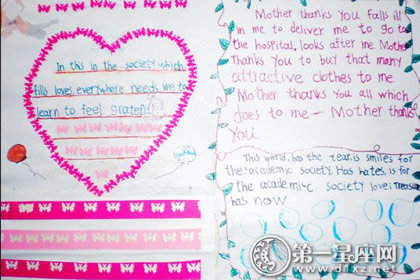 In this in the society which
fills loves, everywhere needs we to
learn to feel
Mother thanks you falls ill
in me to deliver me to go to
the hospital, looks after me Mother
thanks you to buy that many
attractive clothes to me
Mother thanks you all which
does to me — Mother thanks
you
This world, has the tear, is smiles for
the academic society. Has hates, is for
the academic society love; Treasu
has now
第一星座网
www.d1xz.net